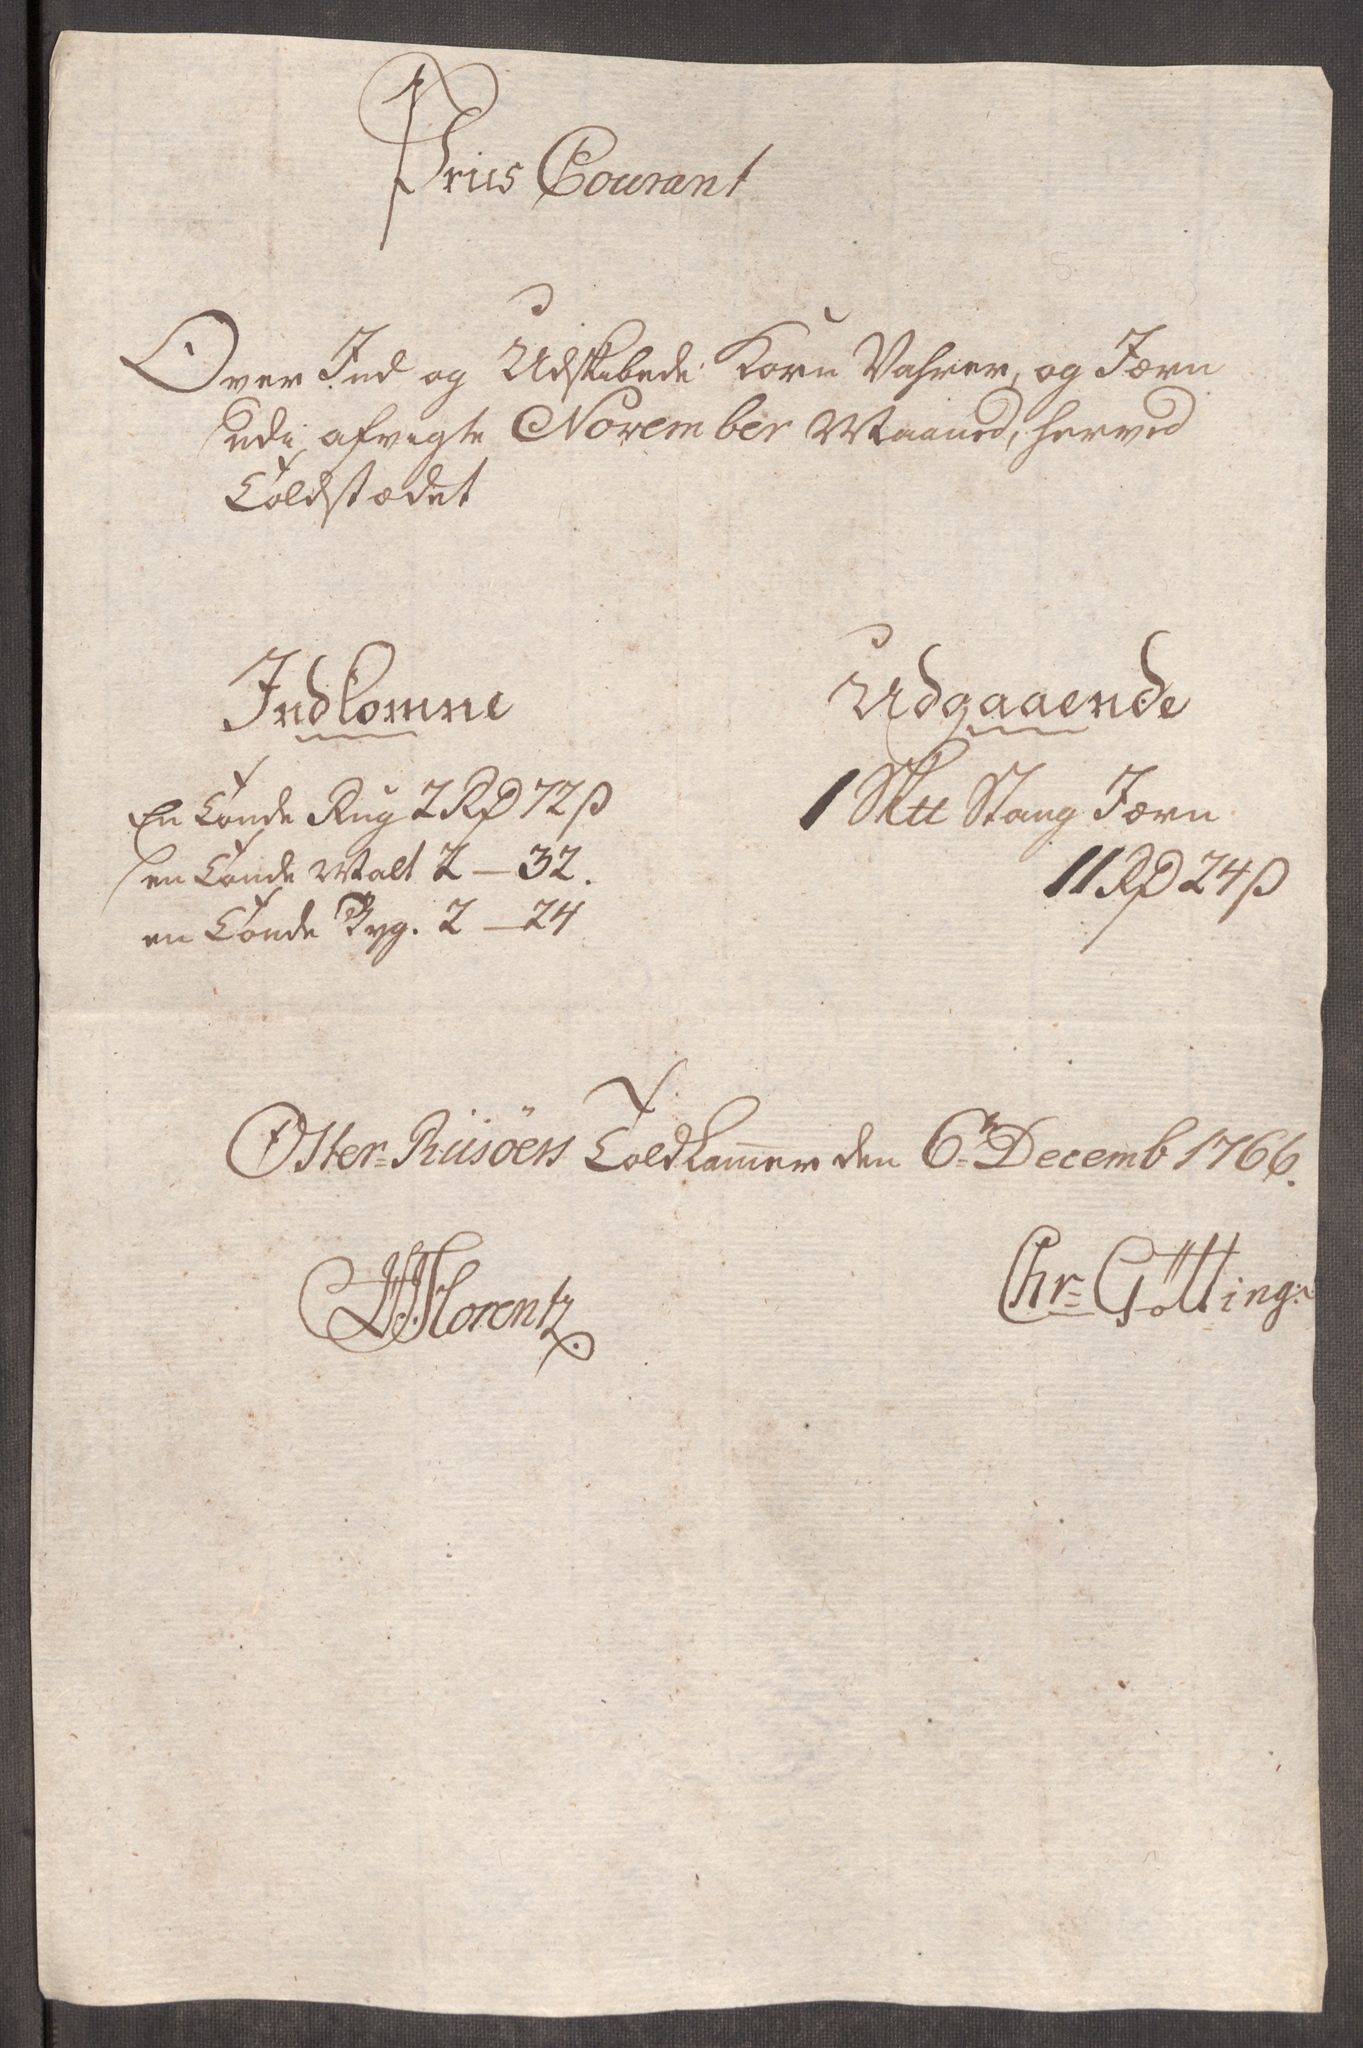 Priis Courant
Over Ind og Udskibede Korn Vahrer, og Jærn
udi afvigte November Maaned, herved
Toldstædet
Indkomne
En Tønde Rug 2 Rd 72 ß
en Tønde Malt 2 — 32.
en Tønde Byg. 2 — 24
Udgaaende
1 Sk℔ Stang Jærn
11 Rd 24 ß
Oster-Riisöers Toldkammer den 6te Decemb 1766.
Florentz.
Chr= Götting